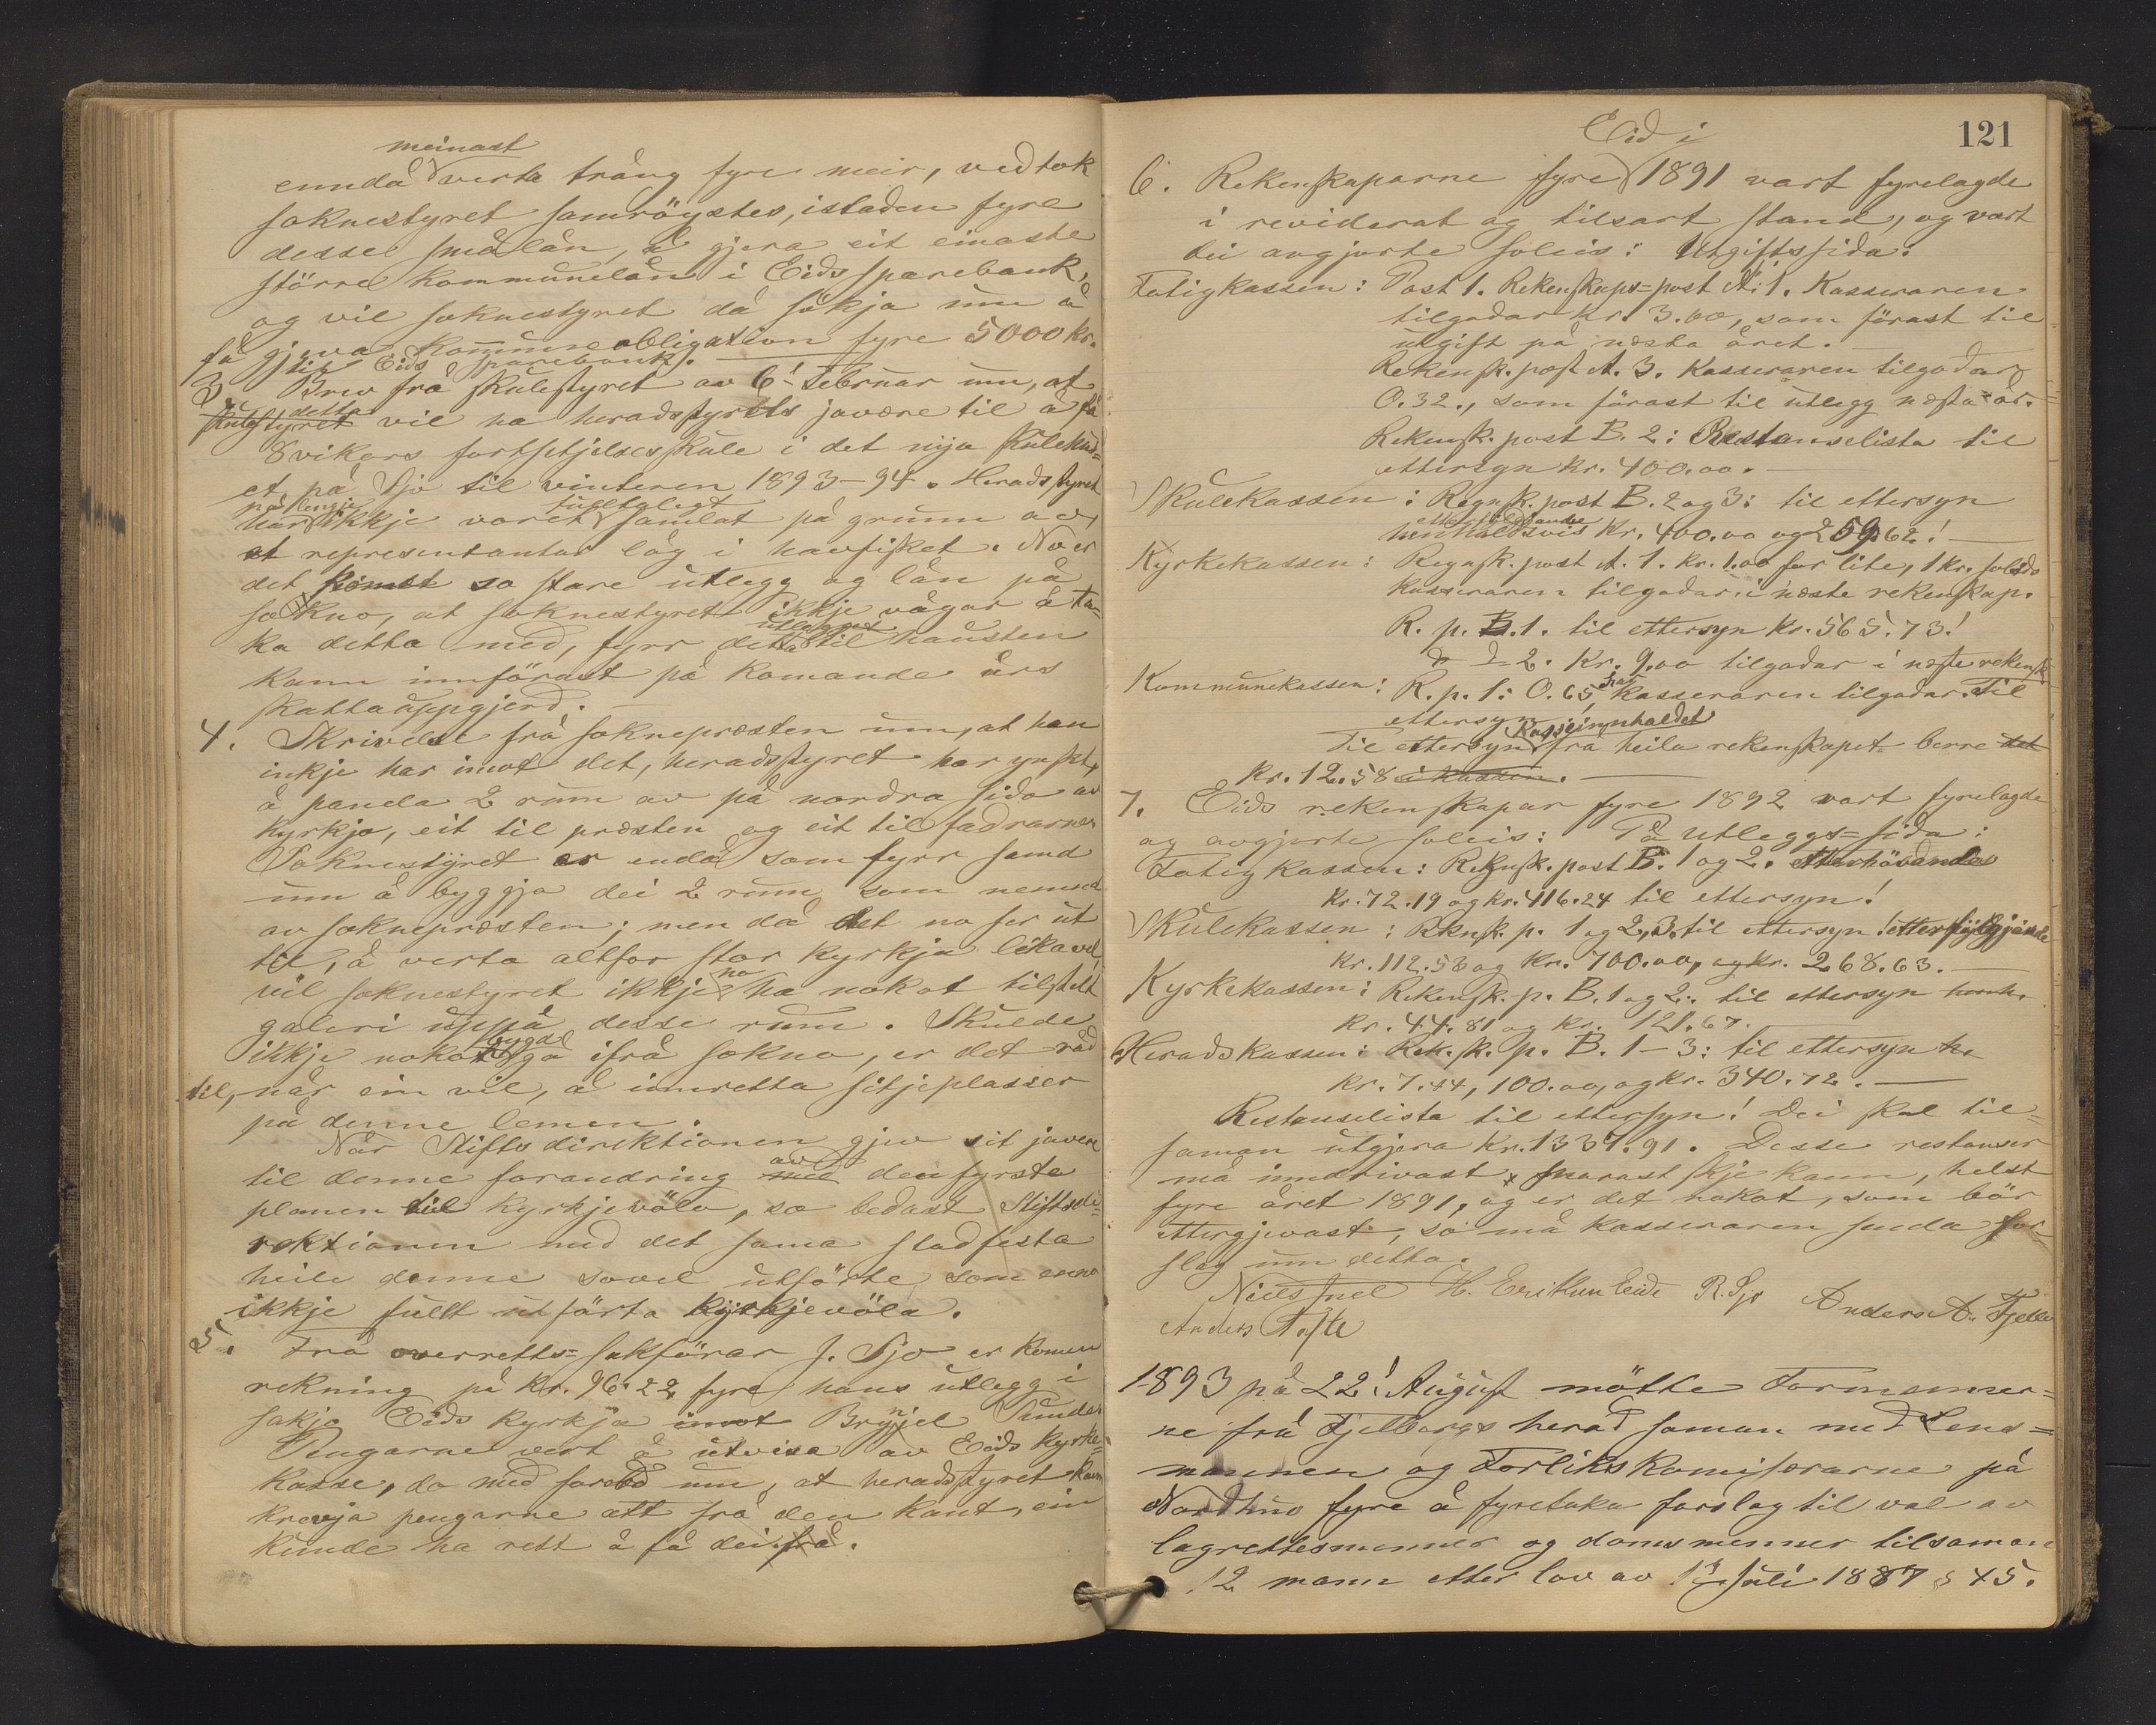 meinast
enndå verta trång fyre meir, vedtok
soknestyret samröystes, istaden fyre
desse smålån, å gjera eit einaste
större kommunelån i Eids sparebank,
og vil soknestyret då sökja um å
få gjeva kommuneobligation fyre 5000 kr.
til Eids sparebank.
3. Brev frå skulestyret av 6! Februar um, at
detta
skulestyret vil ha heradsstyrets javære til å få
8 vikors fortsetjelsesskule i det nyja skulehus-
et på Sjo til vinteren 1893-94. Heradsstyret
på lengje fulltalegt
har ikkje voret samlat på grunn av,
at representantar låg i havfisket. No er
det komet so store utlegg og lån på
sokno, at soknestyret ikkje vågar å ta-
utlegget
ka detta med, fyrr detta til hausten
kann innförast på komande års
skattauppgjerd.
4. Skrivelse frå sokneprosten um, at han
inkje har imot det, heradsstyret har ynskt,
å panela 2 rum av på nordra sida av
kyrkja, eit til presten og eit til fadrarne.
Soknestyret er endå som fyrr samd
um å byggja dei 2 rum som nemnd
av sokneprosten; men då det no ser ut
til, å verta altfor stor kyrkja likavel
no
vil soknestyret ikkje ha nokot tilstelt
galeri uppå desse rum. Skulde
bygdel
ikkje nokot gå ifrå sokno, er det råd
til, når ein vil, å innretta sitjeplasser
på denne lemen.
Når Stiftsdirektionen gjev sit javære
av
til denne forandring med den fyrste
planen til kyrkjevöla, so bedast Stiftsdi-
rektionen med det sama stadfesta
heile denne sovel utförte som enno
ikkje fullt utförta kyrkjevöla.
5. Frå overretts-sakförar J. Sjo er komen
rekning på kr. 96.22 fyre hans utlegg i
sakjo Eids kyrkja imot Brynjel Sunde.
Pengarne vert å utvisa av Eids kyrke-
kasse, do med forebod um, at heradsstyret kann
krevja pengarne att frå den kant, ein
kunde ha rett å få dei frå.
121
Eid i
6. Rekenskaparne fyre 1891 vart fyrelagde
i reviderat og tilsvart stand, og vart
dei avgjorte soleis: Utgiftssida:
Fatigkassen: Post 1. Rekenskaps-post A. 1. Kasseraren
tilgodar kr. 3.00, som förast til
utgift på næsta året.
Rekensk. post A. 3. Kasseraren tilgodar
0.32., som förast til utlegg næsta år.
Rekensk. post B. 2: Restanselista til
ettersyn kr. 400.00.
Skulekassen: Regnsk. post B. 2 og 3: til ettersyn
kr. 400.00 og 259.62!
Kyrkekassen: Regnsk. post A. 1. kr. 1.00 for lite, 1 kr. soleids
kasseraren tilgodar i næste rekenskap.
R. p. B. 1. til ettersyn kr. 565.73!
2. kr. 9.00 tilgodar i næste rekensk.
Kommunekassen: R. p. 1: 0.65 har kasseraren tilgodar. Til
ettersyn
Kasseinnhaldet
Til ettersyn frå heila rekenskapet berre det
kr. 12.58 i kassen.
7. Eids rekenskapar fyre 1892 vart fyrelagde
og avgjorte soleis: På Utleggs-sida:
Fatigkassen: Regnsk. post B. 1 og 2.
kr. 72.19 og kr. 416.24 til ettersyn!
Skulekassen: Rknsk. p. 1 og 2, 3. til ettersyn! etterfylgjande
kr. 112.58 og kr. 700.00, og kr. 268.63.
Kyrkekassen: Rekensk. p. B. 1 og 2: til ettersyn
kr. 44.81 og kr. 121.67.
Heradskassen: Rek. sk. p. B. 1-3: til ettersyn
kr. 7.44, 100.00, og kr. 340.72.
Restanselista til ettersyn! Dei skal til-
saman utgjera kr. 1337.91. Desse restanser
må inndrivast snarast skje kann, helst
fyre året 1891, og er det nokot, som bör
ettergjevast, so må kasseraren senda for-
slag um detta.
Nielsfnel H. Eriksen Eide R. Sjo Anders A. Fjelle
Anders Tofte
1893 på 22! August mötte Formenner-
ne frå Fjelbergs herad saman med Lens-
mannen og Forlikskomisærarne på
Nordhuo fyre å fyretaka forslag til val av
lagrettesmenner og domsmenner tilsaman
12 mann etter lov av 1ste Juli 1887 § 45.